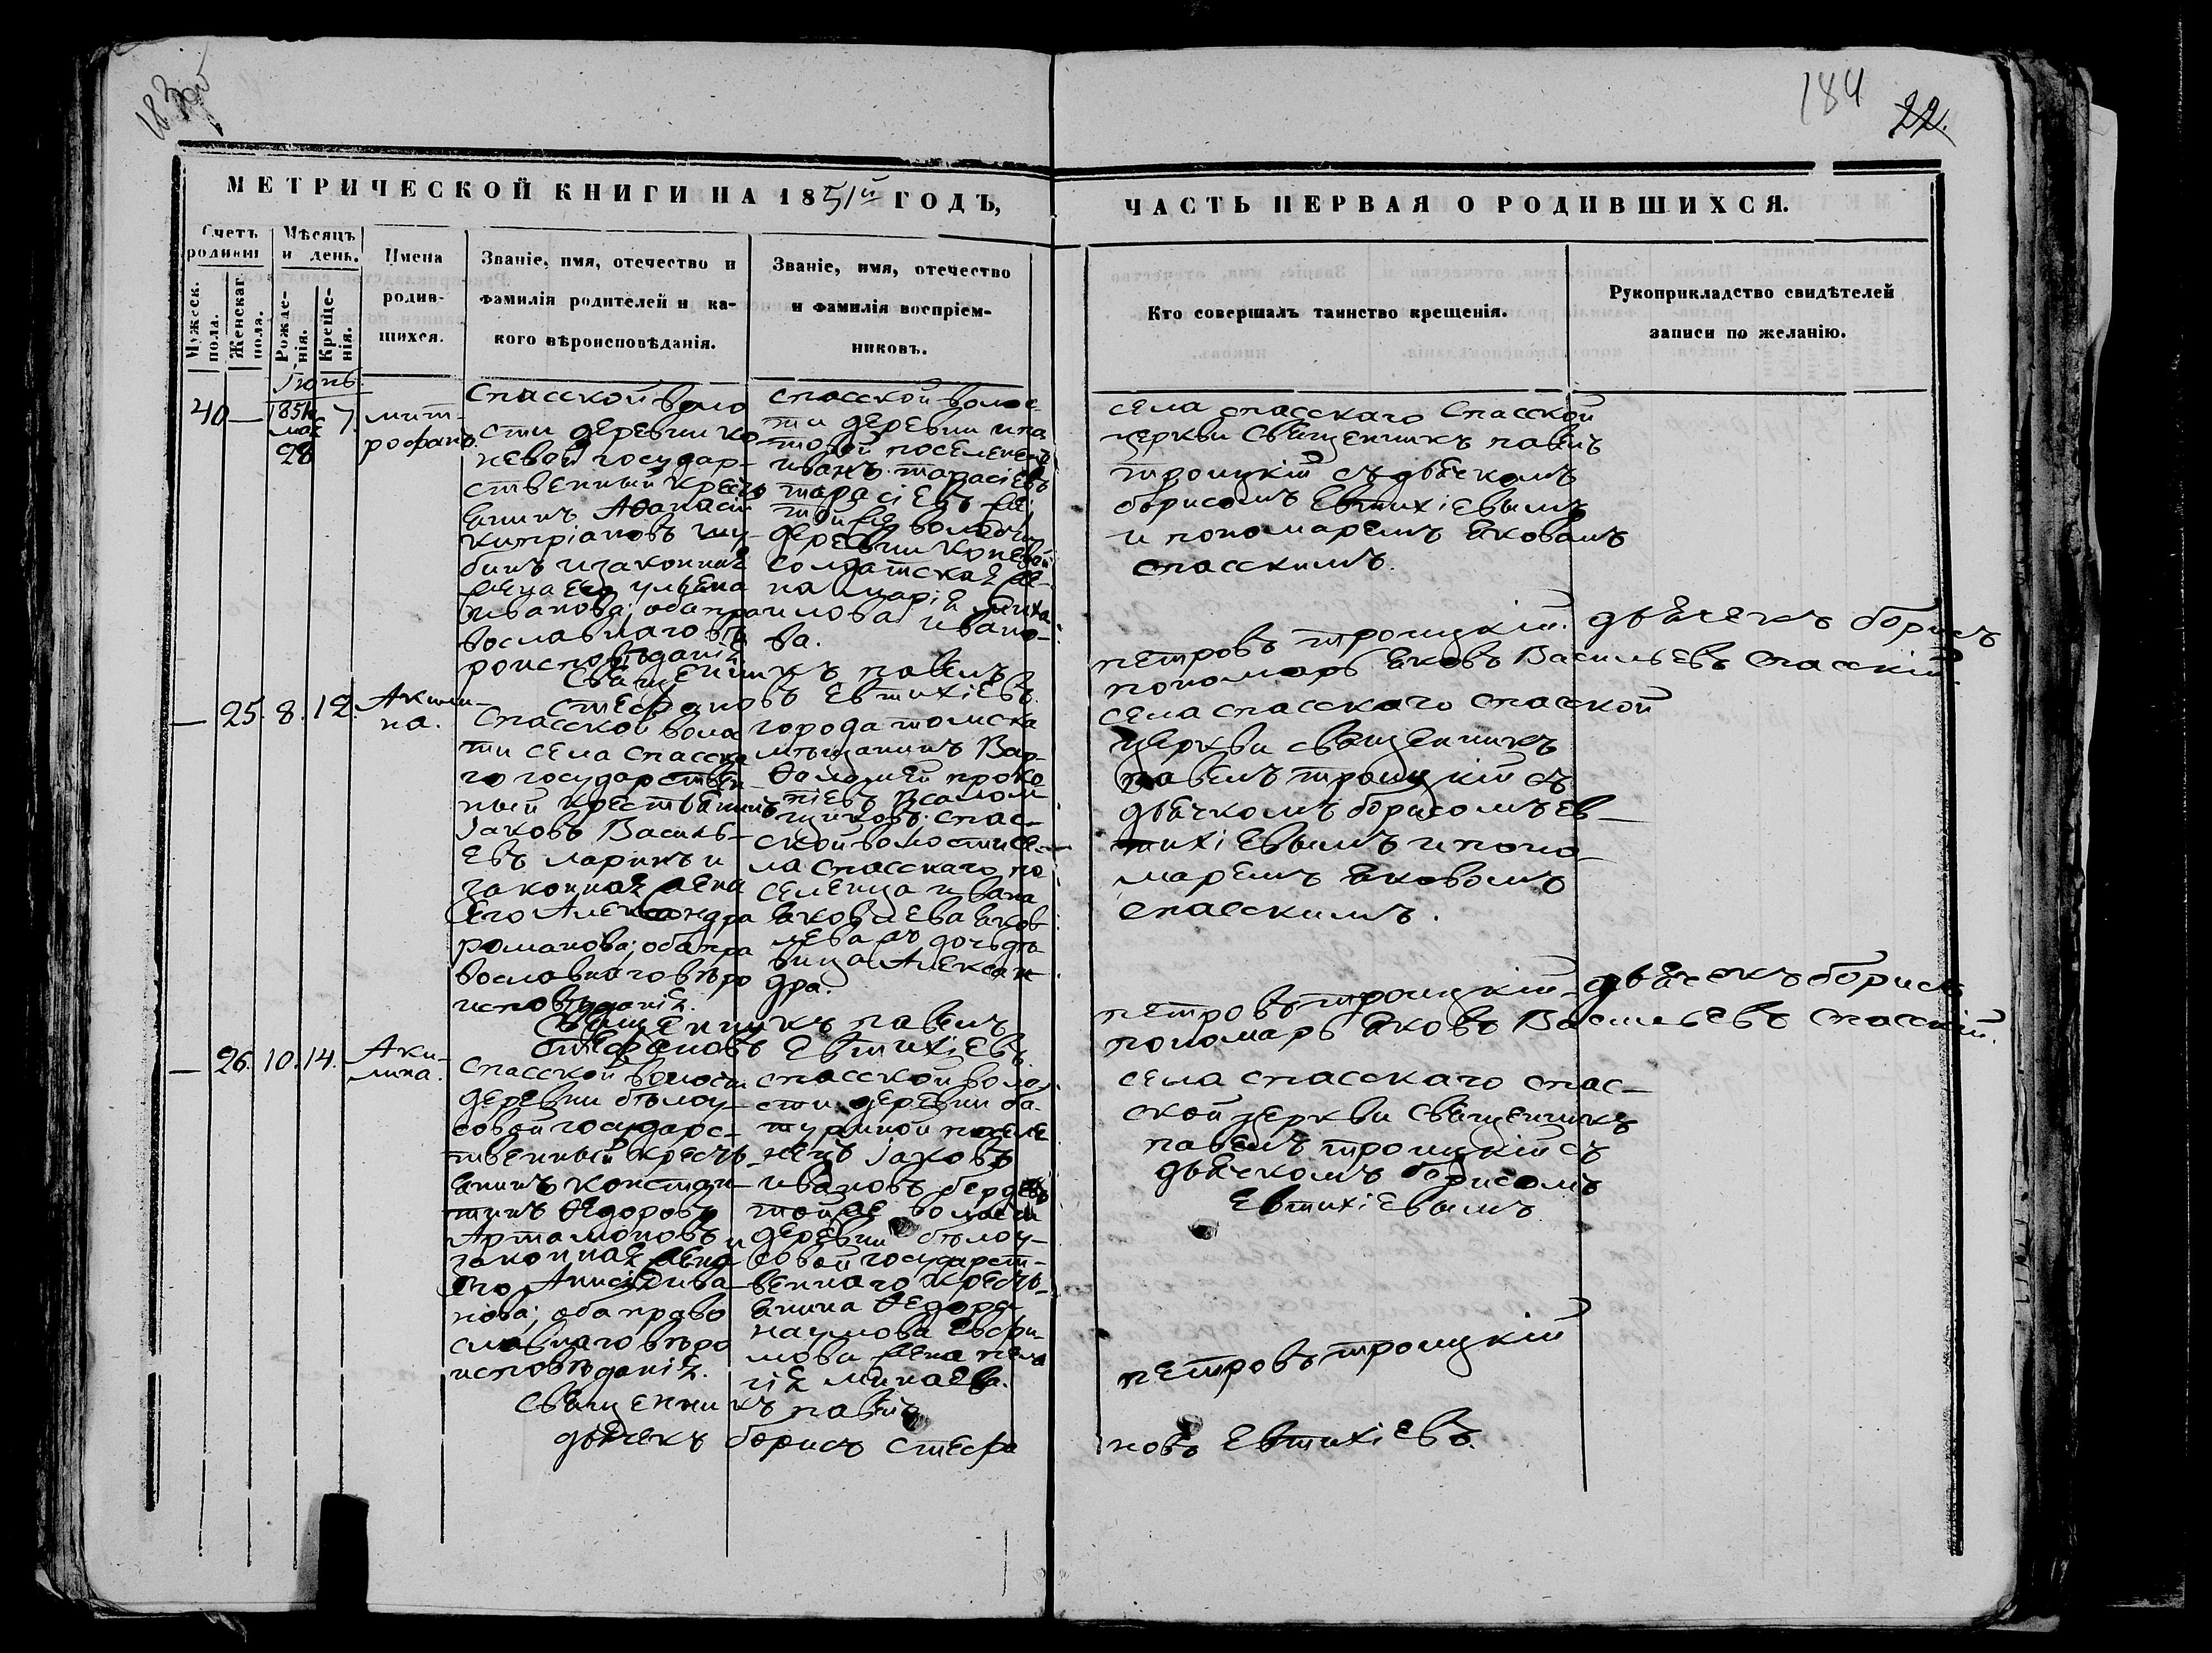 184
22.
МЕТРИЧЕСКОЙ КНИГИ НА 1851й ГОДЪ,
ЧАСТЬ ПЕРВАЯ О РОДИВШИХСЯ.
Счетъ родивш
Мужеск. пола.
Женскаг пола.
Мѣсяцъ и день.
Рожде-нія.
Креще-нія.
Имена
родив-
шихся.
Званіе, имя, отечество и
фамилія родителей и ка-
кого вѣроисповѣданія.
Званіе, имя, отечество
и фамилія воспріем-
никовъ.
Кто совершалъ таинство крещенія.
Рукоприкладство свидѣтелей
записи по желанію.
Іюнь.
40 —
1851
мая
28
7.
мит-
рофанъ.
Спасской воло
сти деревни ко-
невой государ-
ственный кресть
янинъ Аѳанасій
кипріановъ шу-
бинъ и законная
жена его ульяна
иванова; оба пра
вославнаго вѣ
роисповѣданія
спасской волос-
ти деревни ипа
товой поселенецъ
иванъ тарасіевъ
тарасіевъ
той же волости
деревни коневой
солдатская же-
на марія миха
илова ивано-
ва.
села спасскаго Спасской
церкви Священникъ павелъ
троицкій съ дьячкомъ
борисомъ Евтихіевымъ
и пономаремъ яковомъ
спасскимъ.
Священникъ павелъ
петровъ троицкій. дьячекъ борисъ
стефановъ Евтихіевъ.
пономарь яковъ Васильевъ спасскій.
— 25. 8. 12.
Акили-
на.
Спасской воло
ти села спасска
го государствен
ный крестьянинъ
Іаковъ Василь-
евъ ларинъ и
законная жена
его Александра
романова; оба пра
вославнаго вѣро
исповѣданія.
города томска
мѣщанинъ Вар-
ѳоломей проко
піевъ Псалом
щиковъ. спас-
ской волости се-
ла спасскаго по
селенца ивана
яковлева яков
лева дочь дѣ
вица Алексан
дра.
села спасскаго спасской
церкви священникъ
павелъ троицкій съ
дьячкомъ борисомъ ев-
тихіевымъ и поно-
маремъ яковомъ
спасскимъ.
Священникъ павелъ
петровъ троицкій. дьячекъ борисъ
стефановъ Евтихіевъ
пономарь яковъ Васильевъ спасскій.
— 26. 10. 14.
Аки-
лина.
Спасской волости
деревни бѣлоу-
совой государс-
твенный кресть-
янинъ констан-
тинъ Ѳедоровъ
Артамоновъ и
законная жена
его Анисія ива-
нова; оба право
славнаго вѣро
исповѣданія.
спасской воло-
сти деревни ба-
туриной поселе
нецъ Іаковъ
ивановъ
той же волости
деревни бѣлоу-
совой государст-
веннаго кресть-
янина Ѳедора
наумова Евфи-
мова жена пела
гія минаева.
села спасскаго спас-
ской церкви Священникъ
павелъ троицкій съ
дьячкомъ борисомъ
Евтихіевымъ
Священникъ павелъ
петровъ троицкій
дьячекъ борисъ стефа
новъ Евтихіевъ.